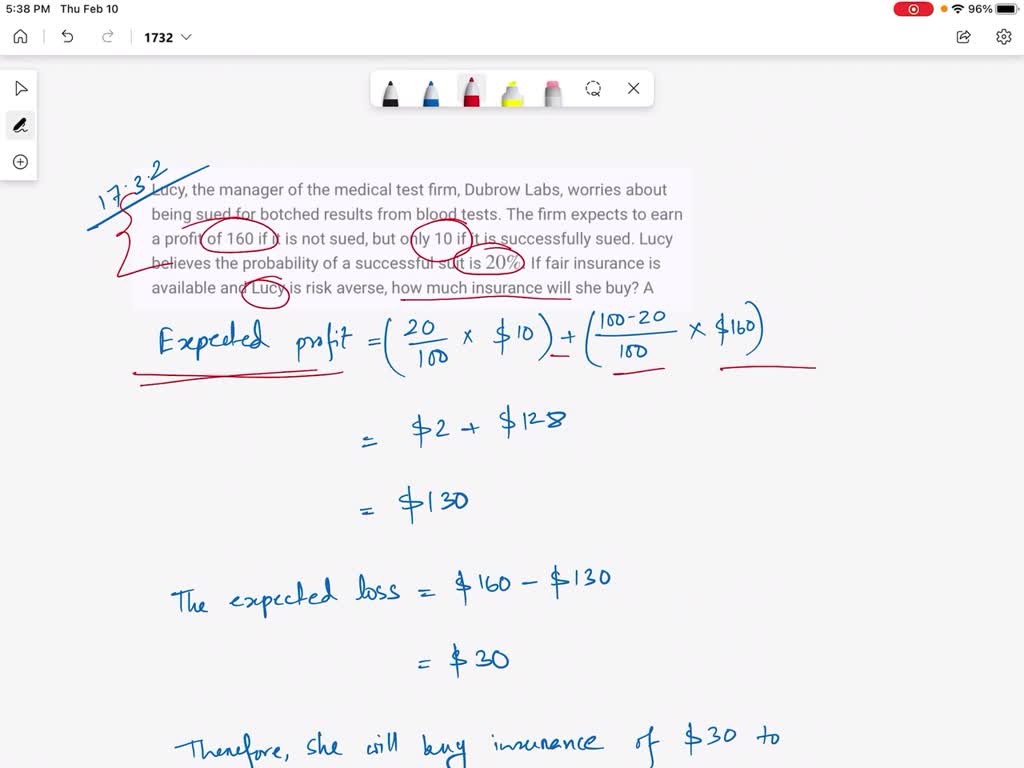 5:38 PM Thu Feb 10
96%
1732
17.3.2
Lucy, the manager of the medical test firm, Dubrow Labs, worries about
being sued for botched results from blood tests. The firm expects to earn
a profit of 160 if it is not sued, but only 10 if it is successfully sued. Lucy
believes the probability of a successful suit is 20%. If fair insurance is
available and Lucy is risk averse, how much insurance will she buy? A
Expected profit = (20/100 × $10) + (100-20/100 × $160)
= $2 + $128
= $130
The expected loss = $160 - $130
= $30
Therefore, she will buy insurance of $30 to